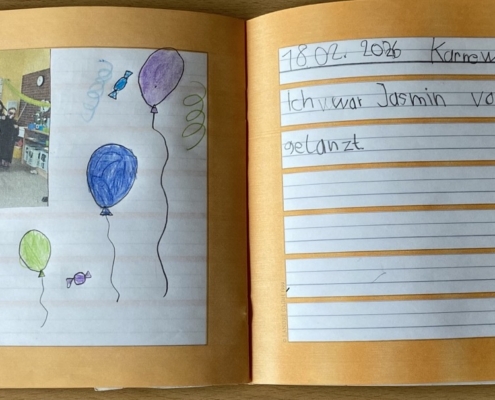 18.02.2026 Karnew
Ich war Jasmin vo
getanzt